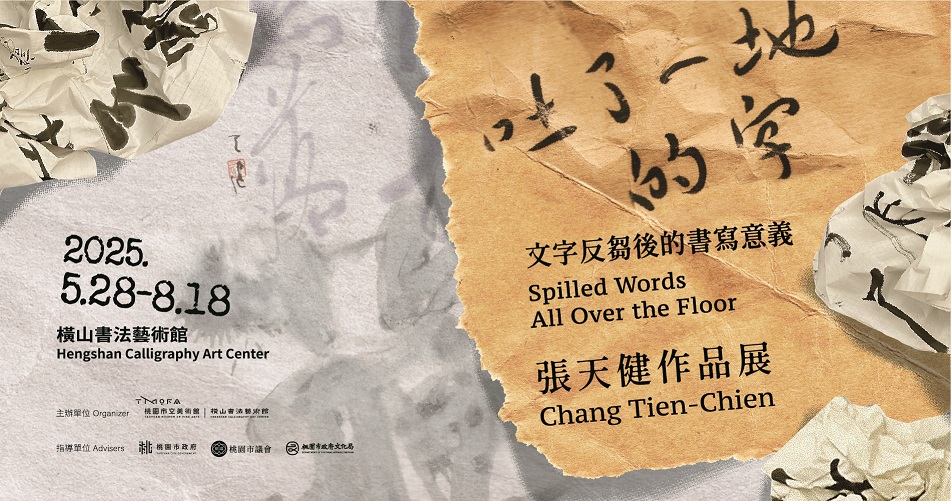 吐了一地
的字
文字反芻後的書寫意義
Spilled Words
All Over the Floor
張天健作品展
Chang Tien-Chien
2025.
5.28-8.18
橫山書法藝術館
Hengshan Calligraphy Art Center
主辦單位 Organizer
TMOFA
桃園市立美術館
橫山書法藝術館
指導單位 Advisers
桃園市政府
桃園市議會
桃園市政府文化局